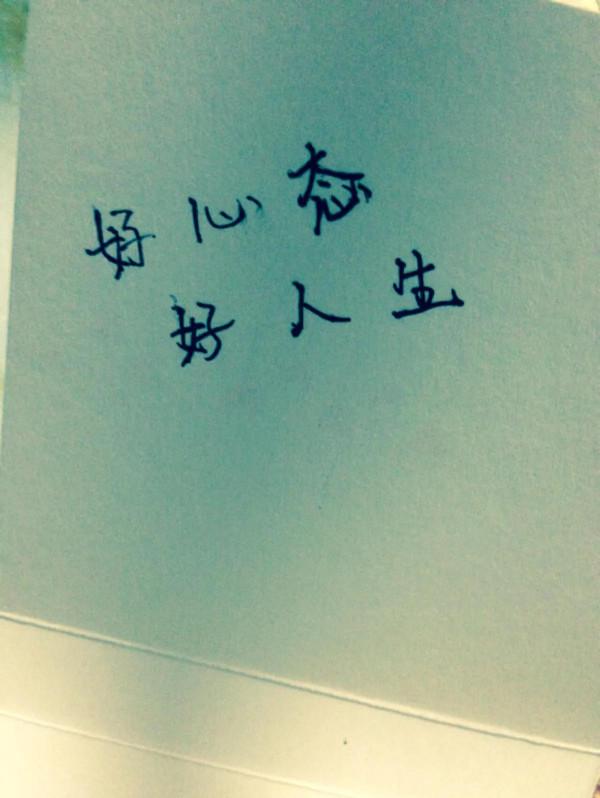 好心态
好人生